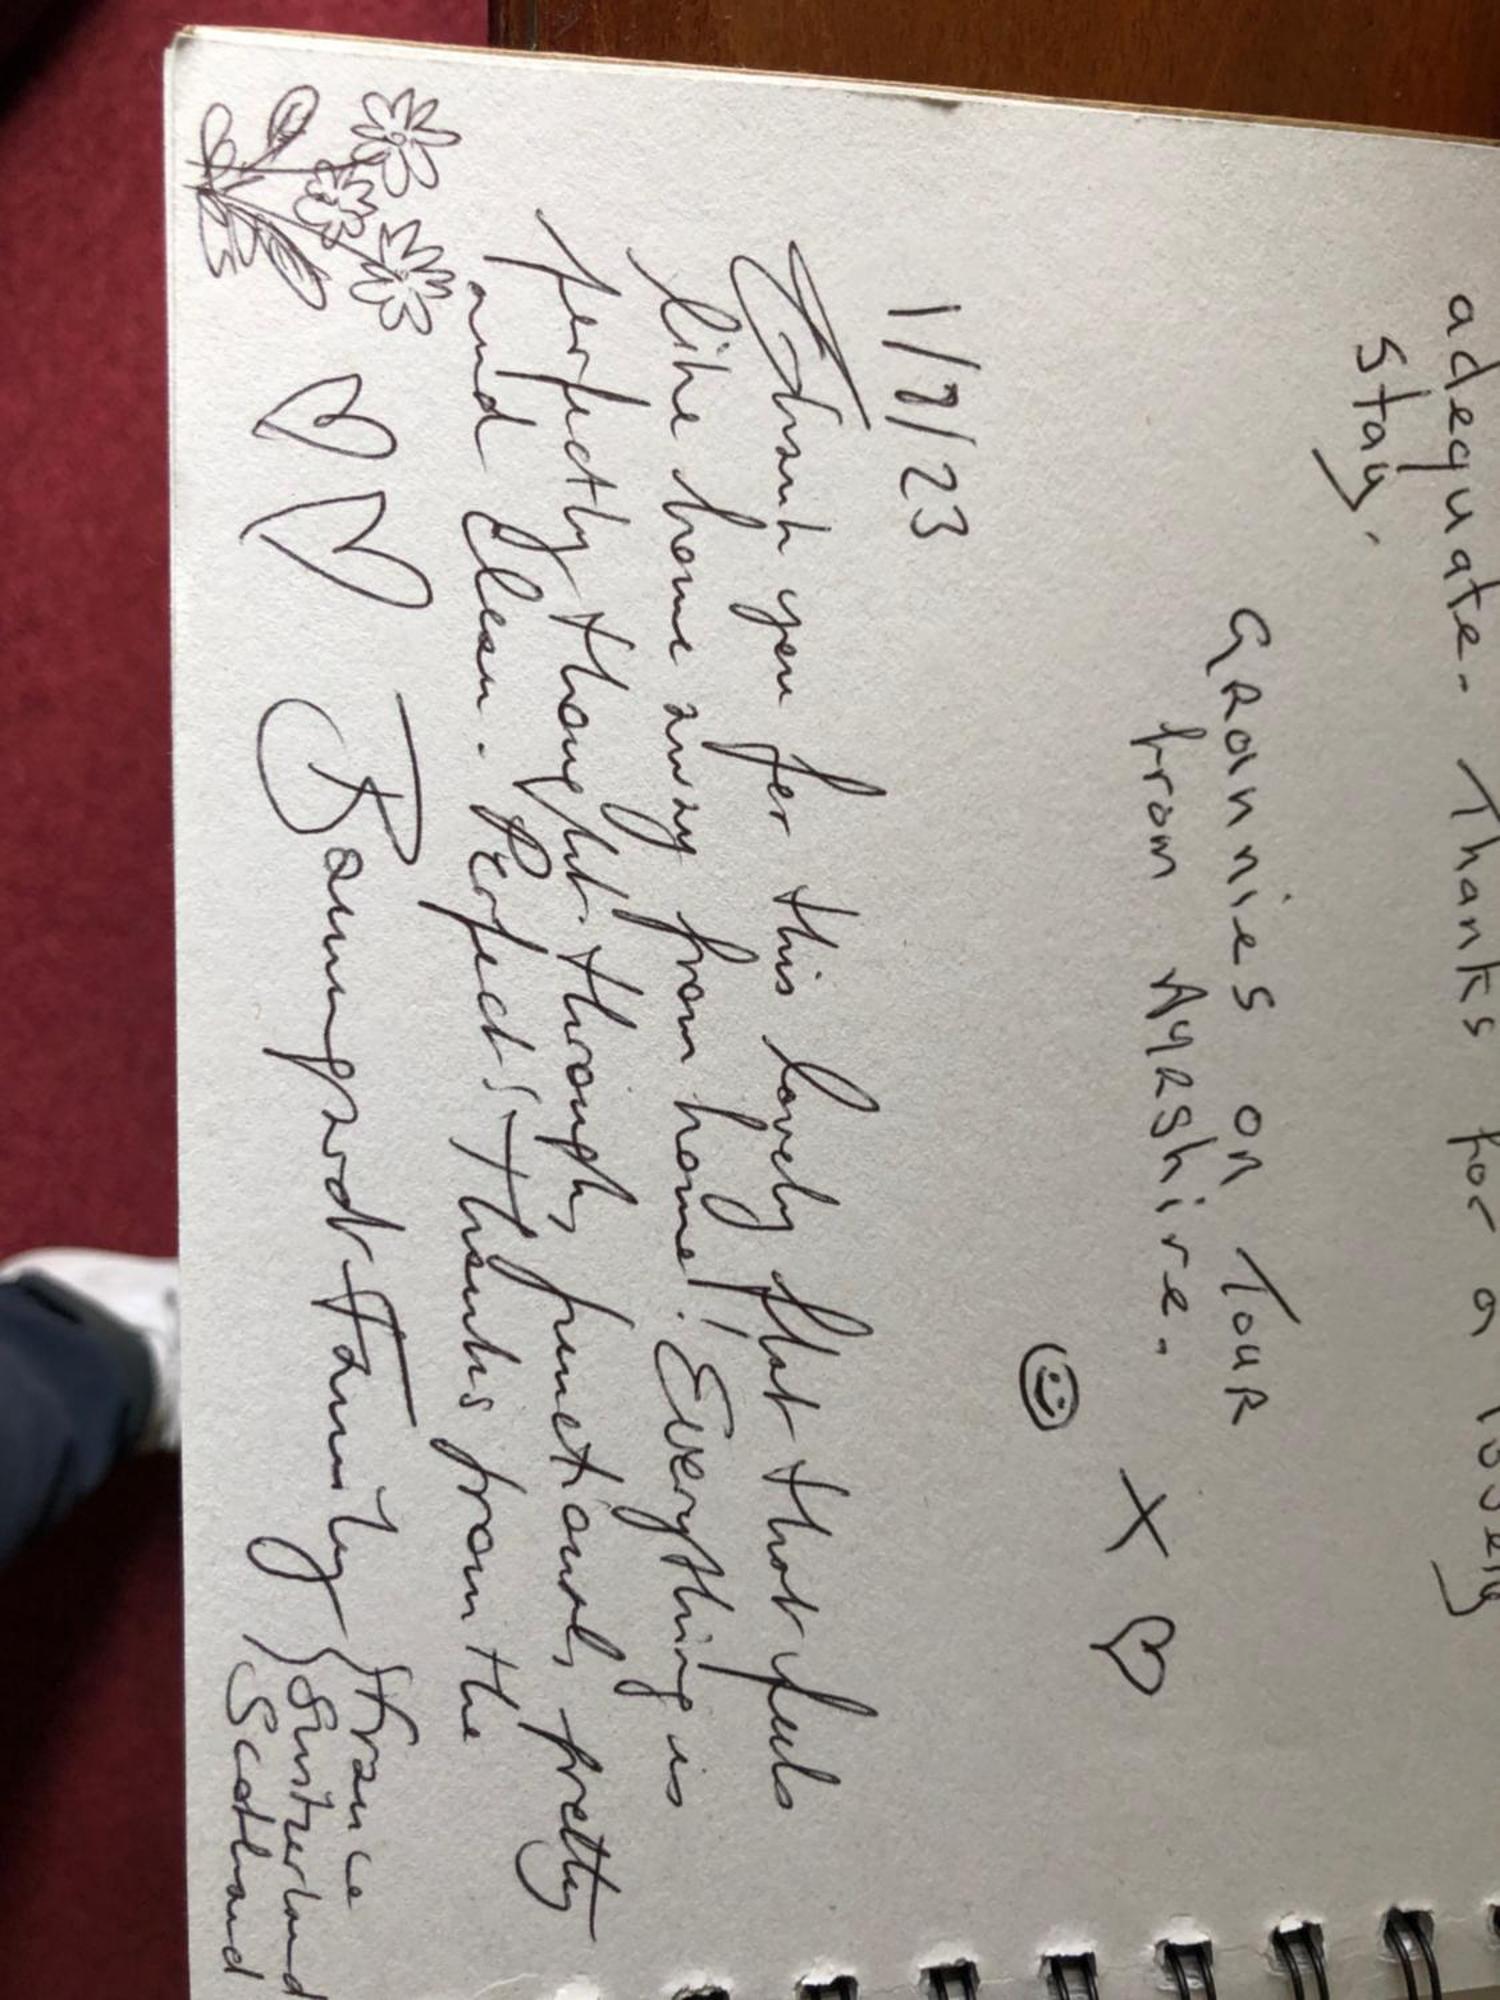 adequate. Thanks for a lovely
stay.
GRannies on Tour
from AyRshire. X ♡
☺
1/7/23
Thank you for this lovely flat that feels
like home away from home! Everything is
perfectly thought through, functional, pretty
and clean. Perfect! Thanks from the
Baumgardt Family {France
{Switzerland
Scotland